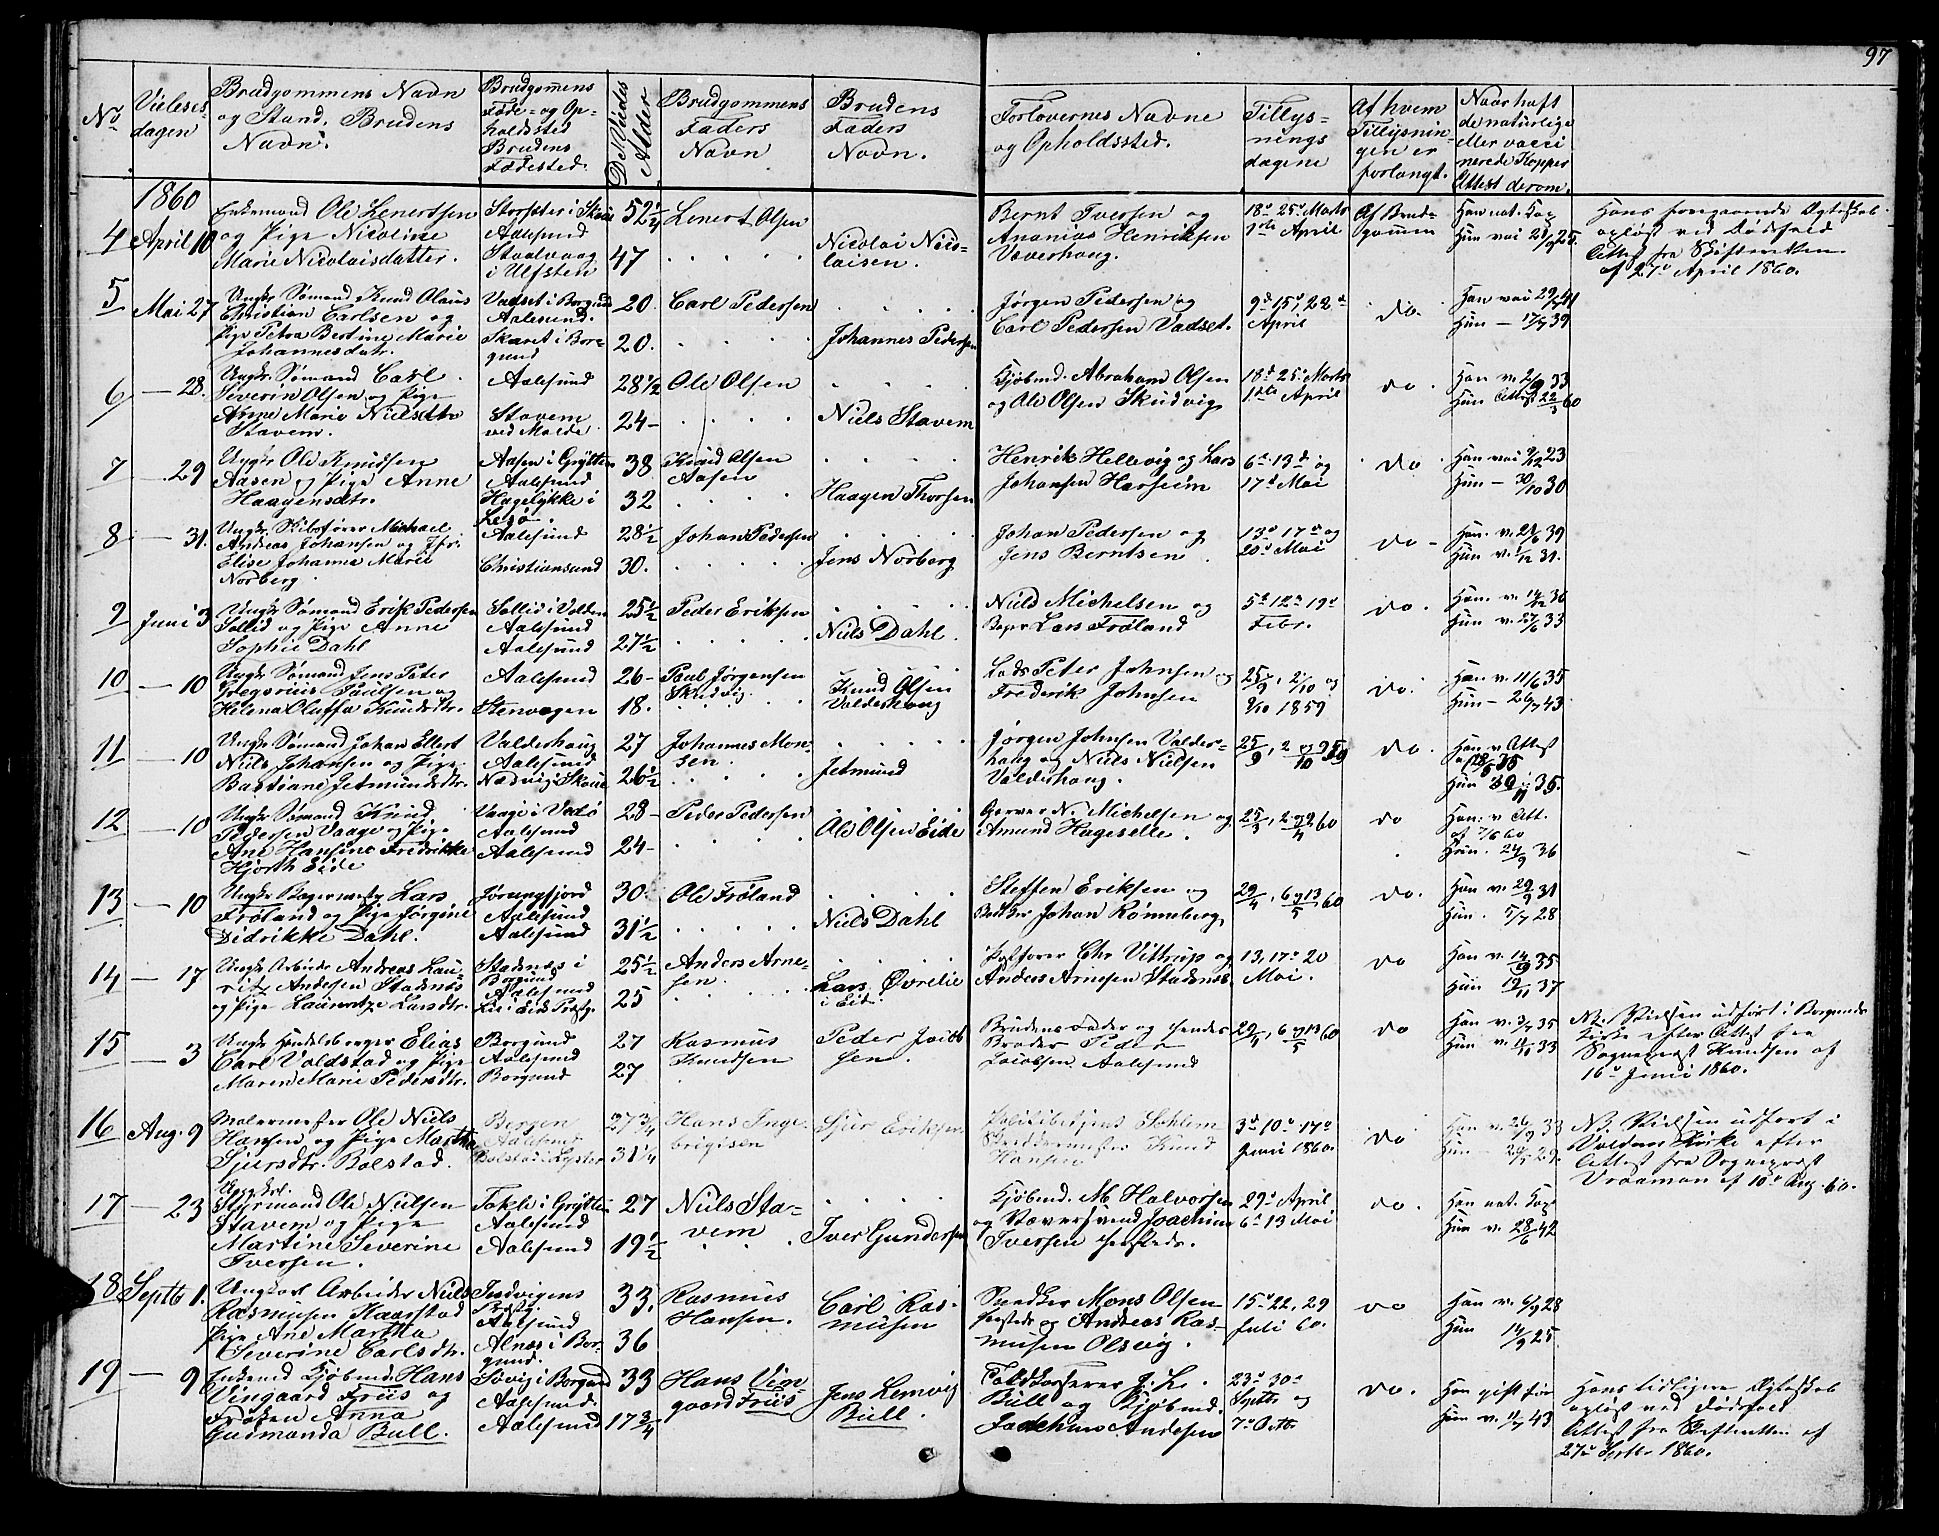 97
No
Vielses-
dagen
Brudgommens Navn
og Stand. Brudens
Navn.
Brudgomens
Føde- og Op-
holdssted
Brudens
Fødested.
De Viedes
Alder
Brudgommens
Faders
Navn
Brudens
Faders
Navn.
Forlovernes Navne
og Opholdssted.
Tillys-
nings
dagene
Af hvem
Tillysnin-
gen er
forlangt.
Naar haft
de naturlige
eller vacci
nerede Kopper
Attest derom.
1860
4 April 10
Enkemand Ole Lenertsen
og Pige Nicoline
Marie Nicolaisdatter.
Aalesund
i Ulfsten
52 1/4
47
Lenert Olsen
Nicolai Nico-
laisen.
Bernt Iversen og
Ananias Henriksen
Væverhoug.
18de 25de Marts
1ste April
Af Brud-
gommen
Han nat. Kop
Hans foregaaende Ægteskab
opløst ved Dødsfald
Attest fra Skifteretten
af 27de April 1860.
5 Mai 27
Ungkr. Sømand Knud Olaus
Christian Carlsen og
Pige Petra Bertine Marie
Johannesdatr.
Vadset i Borgund
Aalesund.
Skaret i Bor-
gund
20
20.
Carl Pedersen
Johannes Pedersen
Jørgen Pedersen og
Carl Pedersen Vadset.
9de 15de 22de
April
do.
Hun - 17/7 39
6 — 28.
Ungkr. Sømand Carl
Severin Olsen og Pige
Anne Marie Nielsdtr
Stavem.
Aalesund
Stavem
ved Molde
28 1/2
24-
Ole Olsen
Niels Stavem
Kjøbmd. Abraham Olsen
og Ole Olsen Skudvig
18de 25de Marts
1ste April
do.
Hun Attest 22/3 60
7 — 29
Ungkr Ole Knudsen
Aasen og Pige Anne
Haagensdtr.
Aasen i Grytten
Aalesund
Hagelykke i
38
32
Knud Olsen
Aasen
Haagen Thorsen
Henrik Hellevig og Lars
Johansen Harheim
6de 13de og
17de Mai
do
Hun - 30/10 30
8 — 31.
Ungkr. Skibsfører Michael
Andreas Johansen og Jfr.
Elise Johanna Marie
Norberg
Aalesund
Christiansund
28 1/2
30.
Johan Pedersen
Jens Norberg
Johan Pedersen og
Jens Berntsen
13de 17de og
20de Mai
do -
9 Juni 3
Ungkr Sømand Erik Pedersen
Sollid og Pige Anne
Sophie Dahl
Sollid i Volden
Aalesund
Aalesund
25 1/2
27 1/2
Peder Eriksen
Niels Dahl.
Niels Michelsen og
Bager Lars Frøland
5de 12de 19de
Febr.
do.
Hun v. 27/6 33
10 — 10
Ungkr. Sømand Jens Peter
Gregorius Paulsen og
Helena Oluffa Knudsdtr.
Aalesund
Stenvogen
26-
18.
Paul Jørgensen
Skudvig.
Knud Olsen
Valdershoug
Lods Peter Johnsen og
Frederik Johnsen
25/9, 2/10 og
9/10 1859
do.
Han v. 11/6 35
Hun - 26/7 43
11 — 10
Ungkr Sømand Johan Ellert
Niels Johansen og Pige
Bastiane Jetmundsdtr.
Valderhoug
Aalesund
27
26 1/2
Johannes Mon-
sen.
Jetmund
Jørgen Johnsen Valder-
houg og Niels Nielsen
Valderhoug.
do.
Han v Attest
12 — 10
Ungkr Sømand Knud
Pedersen Vaage og Pige
Ane Hansine Fredrikke
Hjorth Eide
Vaage i Vedø
Aalesund
Aalesund
28-
24-
Peder Pedersen
Ole Olsen Eide
Garver N. Michelsen og
Amund Hageselle.
do
Han: v Att.
af 7/6 60
Hun. 24/9 36
13 — 10
Ungkr Bagermester Lars
Frøland og Pige Jørgine
Didrikke Dahl.
Jørungfjord
Aalesund
Aalesund
30.
31 1/2
Ole Frøland
Niels Dahl
Steffen Eriksen og
Bødker Johan Rønneberg
29/4, 6 og 13/5 60
do.
Han v. 29/9 31
Hun. 5/7 28
14 — 17
Ungkr Arbeider Andreas Lau-
ritz Andersen Stadsnes
og Pige Lauritze Larsdtr.
Stadsnes i
Borgund
Aalesund
25 1/2
25
Anders Arne-
sen
Lars Øvrelie
i Eid.
Chr Vittrup og
Anders Arnesen Stadsnes
13, 17de 20
Mai.
do
Hun 19/11 37
15 — 3
Ungkr Handelsborger Elias
Carl Voldstad og Pige
Maren Marie Pedersdtr.
Borgund
Aalesund
Borgund
27
27
Rasmus
Knudsen
Peder Jacob
sen.
Brudens Fader og hendes
Broder Peder
Jacobsen Aalesund
29/4, 6 og 13/5 60
do
NB. Vielsen udført i Borgunds
Kirke efter Attest fra
Sogneprest Knudsen af
16de Juni 1860.
16 Aug. 9
Malermester Ole Niels
Hansen og Pige Martha
Sjursdtr. Bolstad.
Bergen
Aalesund
Bolstad i Lyster
27 3/4
31 1/4
Hans Inge-
brigtsen
Sjur Eriksen
Politibetjent Sehlem
Skræddermester Knud
Hansen
3de 10de 17de
Juni 1860.
do
NB. Vielsen udført i
Volden Kirke efter
Attest fra Sogneprest
Vraaman af 10de Aug. 60.
17 — 23
Ungkrl.
Styrmand Ole Nielsen
Stavem og Pige
Martine Severine
Iversen.
Tokle i Grytten
Aalesund
Aalesund
27
19 1/2
Niels Sta-
vem
Iver Gundersen
Kjøbmd. M. Halvorsen
og Væversvend Joachim
Iversen hersteds.
29de April
6de 13 Mai
do.
Han nat. Kop
Hun v. 28/6 42
18 Septb 1.
Ungkarl Arbeider Niels
Rasmusen Haarstad
Pige Ane Martha
Severine Carlsdtr.
Indvigens
Prestg.
Aalesund
Alnæs i Bor-
gund.
33.
36
Rasmus
Hansen.
Carl Ras-
musen
Snedker Mons Olsen
hersteds og Andreas Ras-
musen Olsvig.
15de 22, 29
Juli 60.
do
Han v. 6/9 28
Hun 14/9 25
19 — 9
Enkemd Kjøbmd. Hans
Vingaard Friis og
Frøken Anna
Gudmanda Bull.
Søvig i Borgund
Aalesund.
Aalesund
33
17 3/4
Hans Vin-
gaard Friis
Jens Lemvig
Bull.
Toldkasserer J. L.
Bull og Kjøbmd.
Joachim Andersen
23de 30de
Septbr og
7de Octb.
do.
Han gift før
Hun v. 11/7 43
Hans tidligere Ægteskab
opløst ved Dødsfald
Attest fra Skifteretten af
27de Septbr 1860.